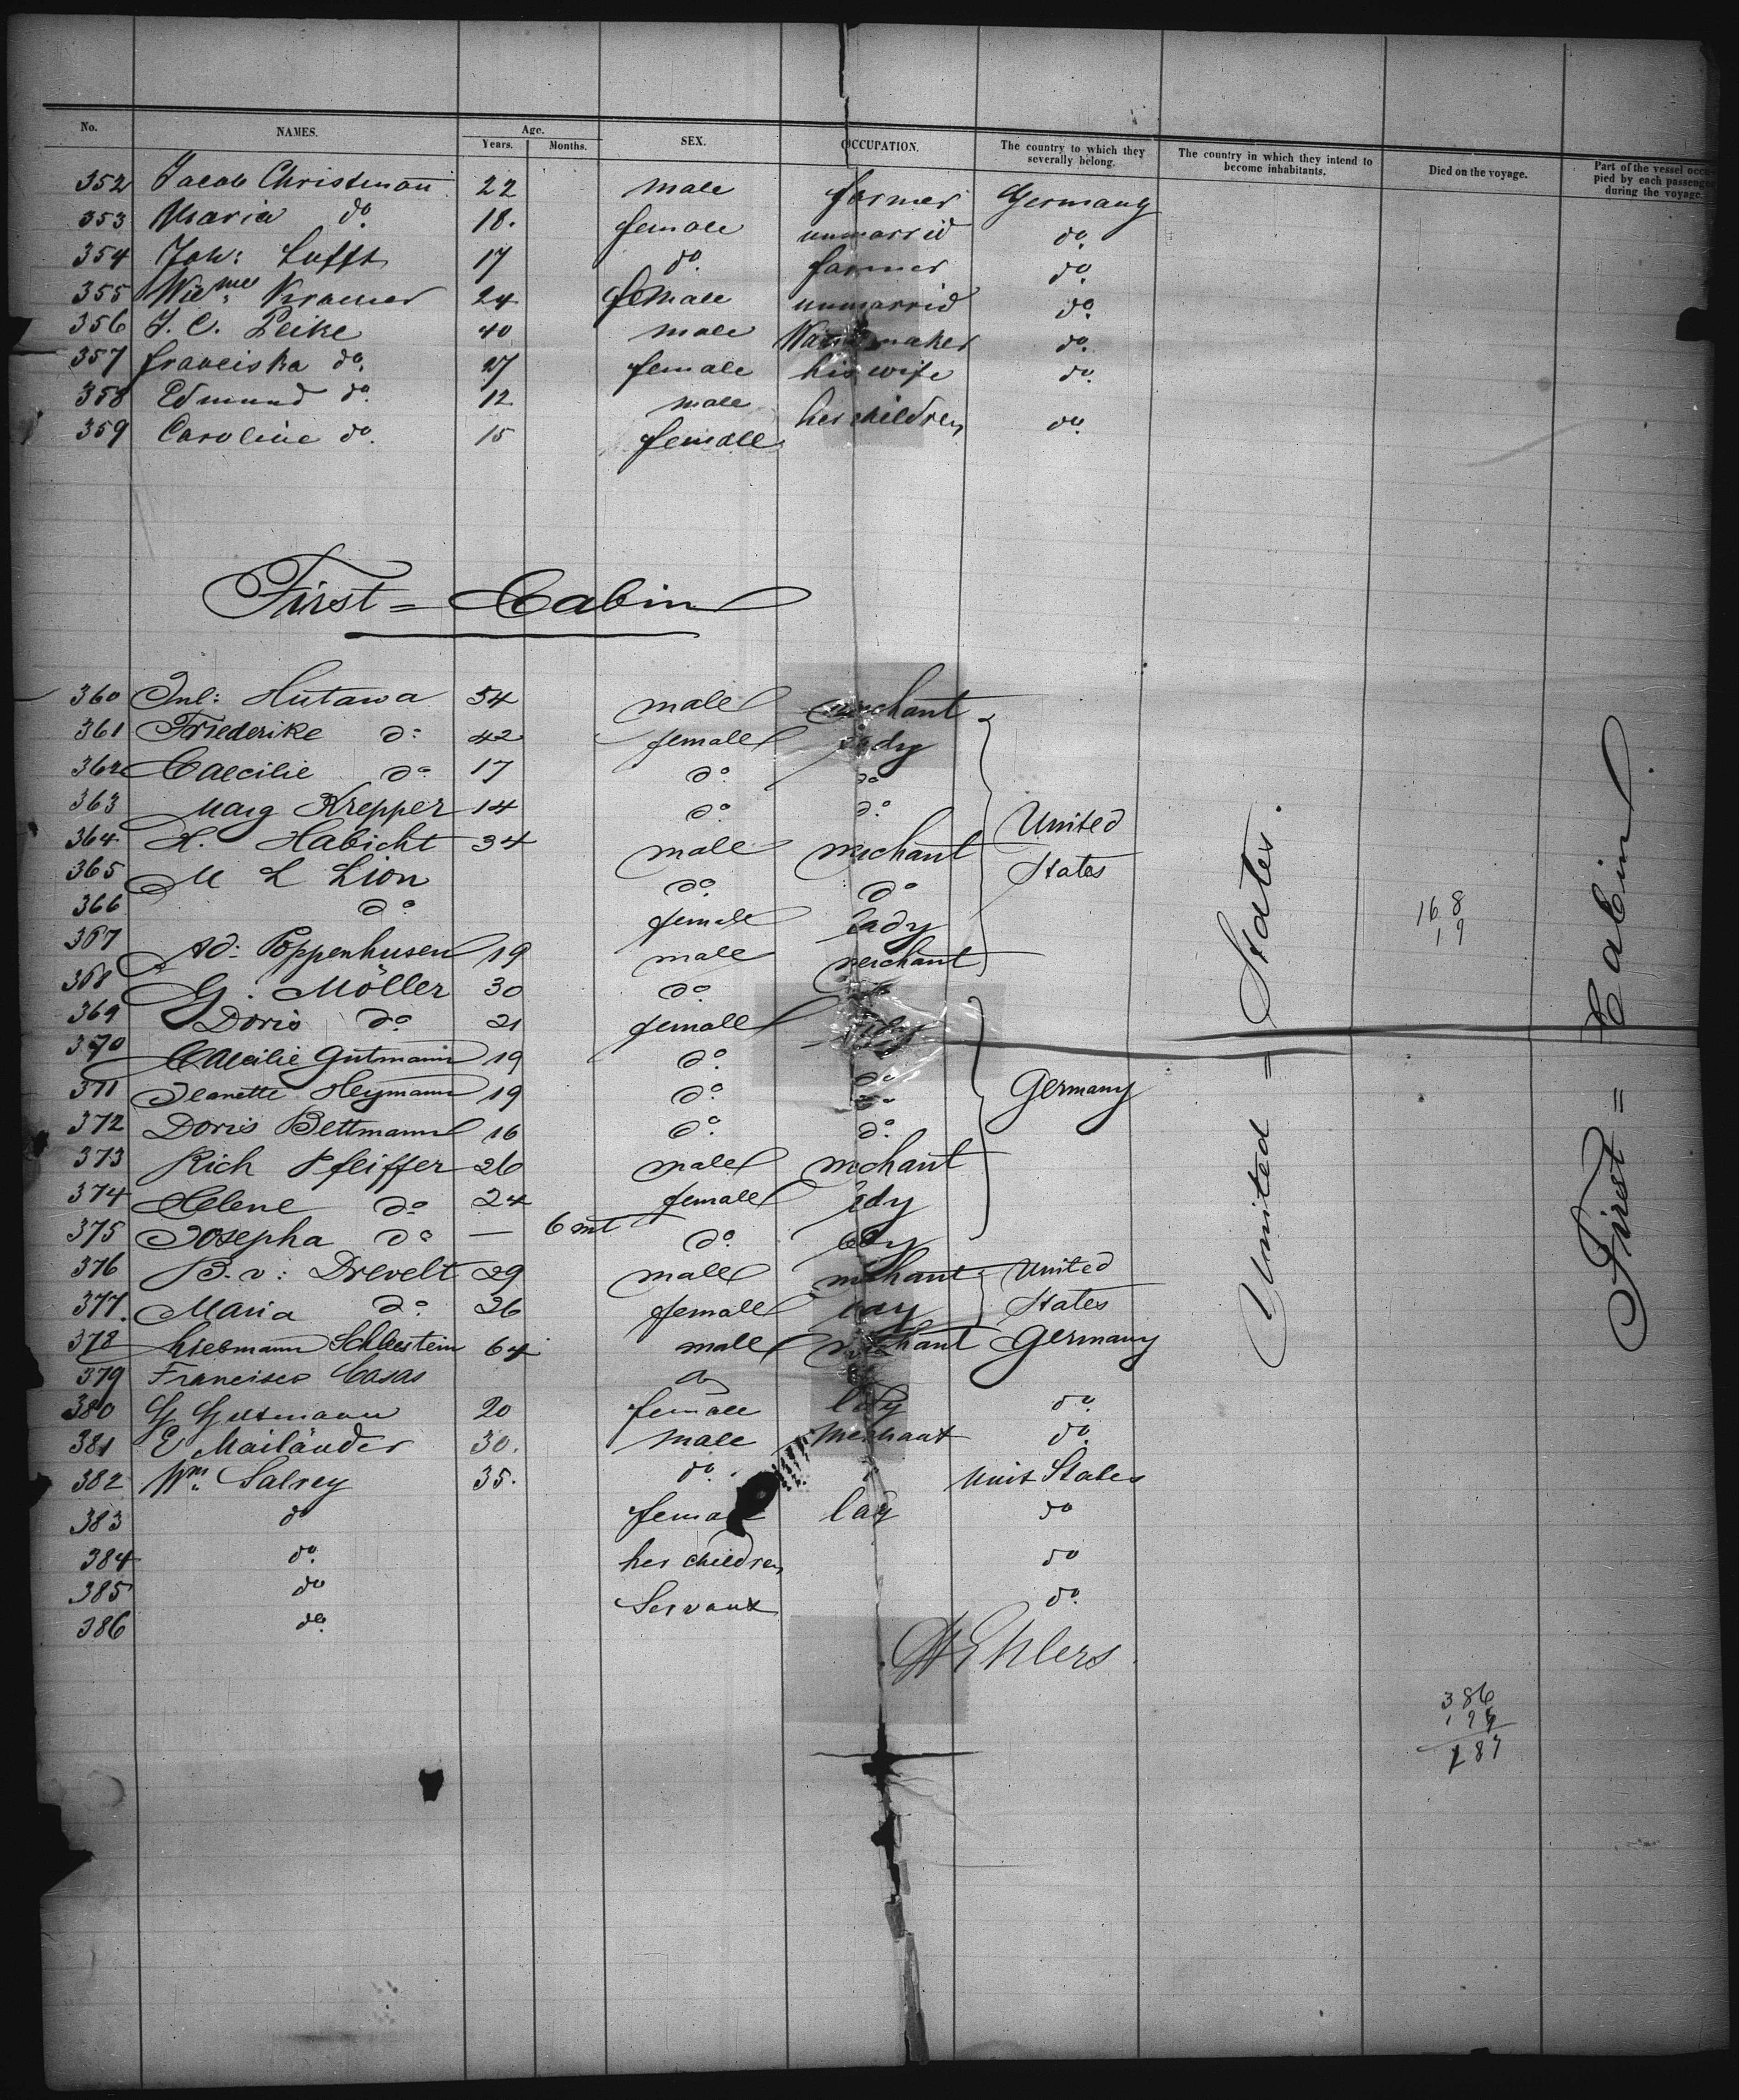 No. NAMES. Age. Years. Months. SEX. OCCUPATION. The country to which they severally belong. The country in which they intend to become inhabitants. Died on the voyage. Part of the vessel occupied by each passenger during the voyage.
352 Jacob Christmann 22 male farmer Germany
353 Maria do. 18. female unmarrid do.
354 Joh: Lufft 17 do. farmer do.
355 Wie.me Kramer 24 female unmarrid do.
356 J. C. Peike 40 male maker do.
357 franciska do. 27 female his wife do.
358 Edmund do. 12 male
359 Caroline do. 15 female her children do.
First = Cabin
360 Jul: Hutawa 54 male merchant
361 Friederike do: 42 female lady
362 Caecilie do 17 do. do
363 Marg Krepper 14 do. do.
364 H. Habicht 34 male merchant
United States
365 M L Lion do. do
366 do female lady
367 Ad. Poppenhusen 19 male merchant
368 G. Möller 30 do.
369 Doris do 21 female lady
370 Caecilie Gutmann 19 do. do
371 Jeanette Heymann 19 do. do
Germany
372 Doris Bettmann 16 do. do.
373 Rich Pfeiffer 26 male mchant
374 Helene do 24 female lady
375 Josepha do — 6 mt do. lady
376 B. v: Drevelt 29 male mchant United
377. Maria do: 26 female lady States
378 Liebmann Schleestein 64 male merchant Germany
379 Francisco Casas do
380 G Gutmann 20 female lady do.
381 E Mailänder 30. male Merchant do.
382 Wm. Salrey 35. do. Unit States
383 do female lady do
384 do. her children do
385 do Servant do.
386 do.
H Ehlers.
United = States.
First = Cabin
168
19
386
187